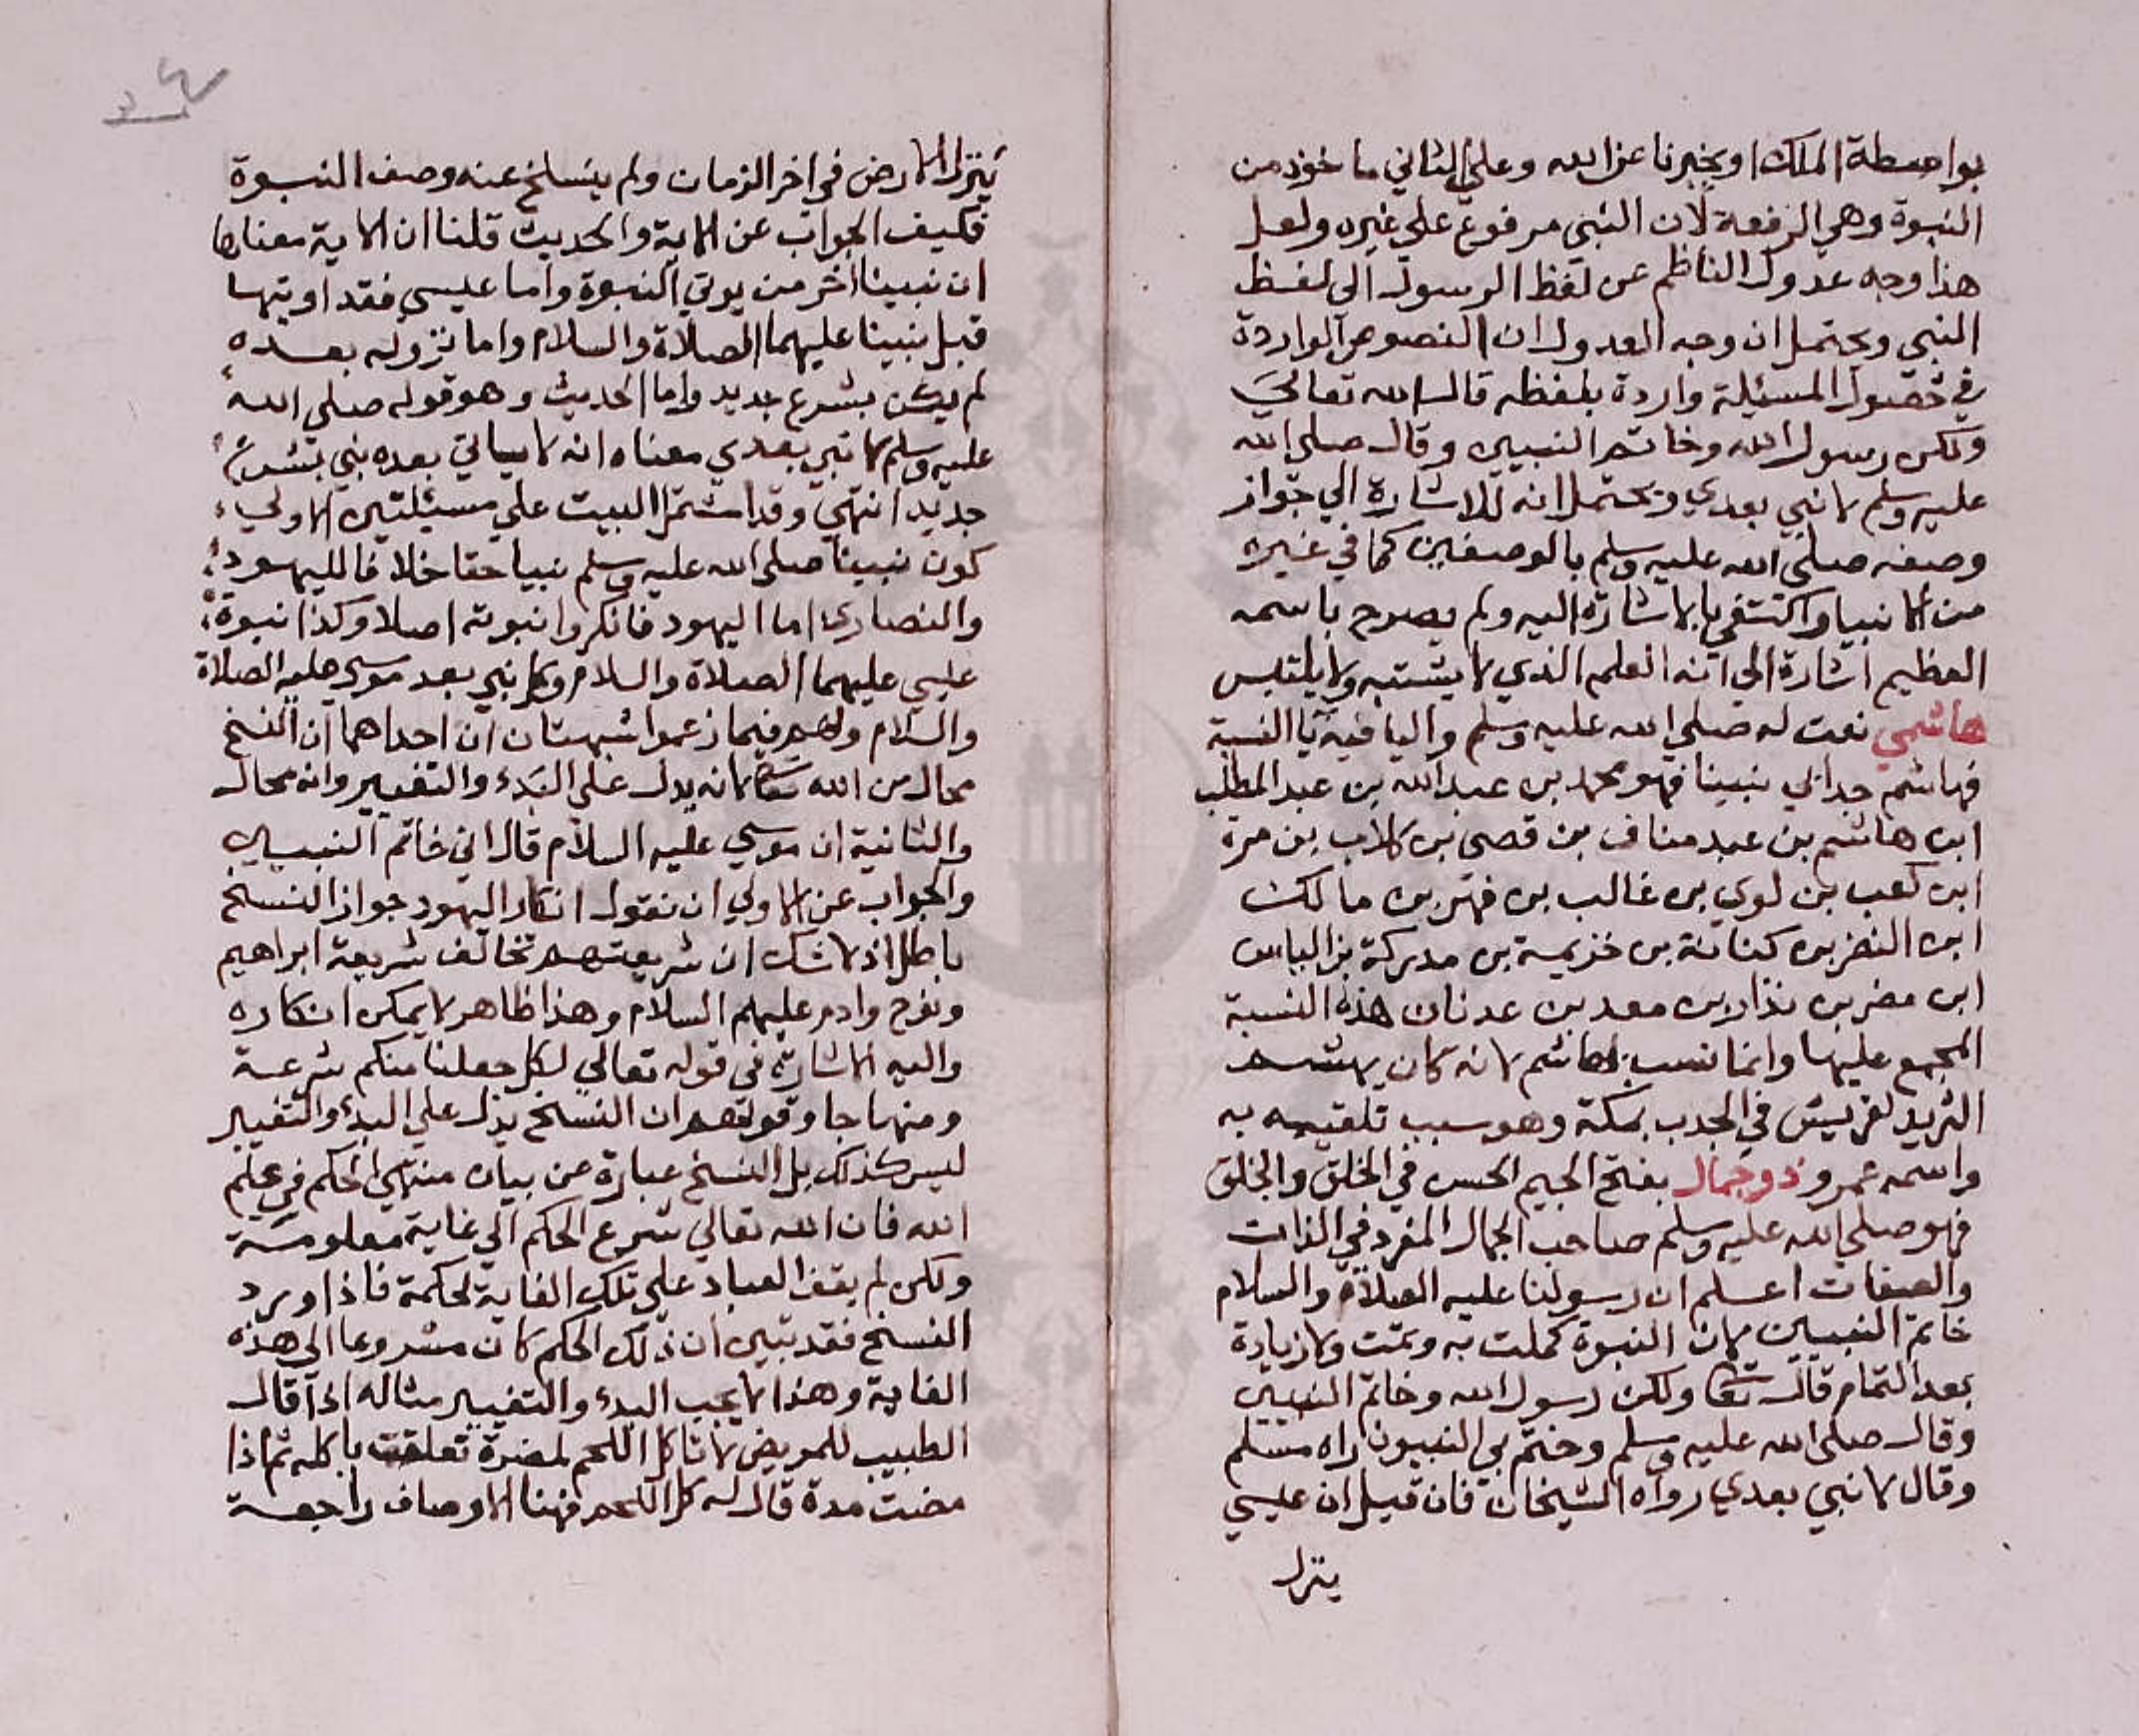 بواسطة الملك او يخبرنا عن الله وعلى الثاني ماخوذ من
النبوة وهي الرفعة لان النبي مرفوع علي غيره ولعل
هذا وجه عدول الناظم عن لفظ الرسول الى لفظ
النبي ويحتمل ان وجه العدول ان النصوص الواردة
في خصوص المسئلة واردة بلفظه قال الله تعالي
ولكن رسول الله وخاتم النبيين وقال صلى الله
عليه وسلم لا نبي بعدي ويحتمل انه للاشارة الي جواز
وصفه صلى الله عليه وسلم بالوصفين كما في غيره
من الانبيا واكتفي بالاشارة اليه ولم يصرح باسمه
العظيم اشارة الى انه العلم الذي لا يشتبه ولا يلتبس
هاشمي نعت له صلى الله عليه وسلم واليا فيه يا النسبة
فهاشم جد ابي نبينا فهو محمد بن عبد الله بن عبد المطلب
ابن هاشم بن عبد مناف بن قصى بن كلاب بن مرة
ابن كعب بن لوي بن غالب بن فهر بن مالك
ابن النضر بن كنانة بن خزيمة بن مدركة بن الياس
ابن مضر بن نذار بن معد بن عدنان هذه النسبة
المجمع عليها وانما نسب لهاشم لانه كان يهشم
الثريد لقريش في الجدب بمكة وهو سبب تلقيبه به
واسمه عمرو ذو جمال بفتح الجيم الحسن في الخلق والخلق
فهو صلي الله عليه وسلم صاحب الجمال المفرد في الذات
والصفات اعلم ان رسولنا عليه الصلاة والسلام
خاتم النبيين لان النبوة كملت به وتمت ولا زيادة
بعد التمام قال تعا ولكن رسول الله وخاتم النبيين
وقال صلى الله عليه وسلم وختم بي النبيون راه مسلم
وقال لا نبي بعدي رواه الشيخان فان قيل ان عيسي
ينزل
ينزل الارض في اخر الزمان ولم ينسلخ عنه وصف النبوة
فكيف الجواب عن الاية والحديث قلنا ان الاية معناها
ان نبينا اخر من يوتي النبوة واما عيسي فقد اوتيها
قبل نبينا عليهما الصلاة والسلام واما نزوله بعده
لم يكن بشرع جديد واما الحديث وهو قوله صلى الله
عليه وسلم لا نبي بعدي معناه انه لا ياتي بعده نبي بشرع
جديد انتهي وقد اشتمل البيت علي مسئلتين الاولي
كون نبينا صلى الله عليه وسلم نبيا حقا خلافا لليهود
والنصارى اما اليهود فانكروا نبوته اصلا وكذا نبوة
عيسي عليهما الصلاة والسلام وكل نبي بعد موسى عليه الصلاة
والسلام ولهم فيما زعموا شبهتان ان احداهما ان النسخ
محال من الله تعا لانه يدل على البدء والتغيير وانه محال
والثانية ان موسي عليه السلام قال اني خاتم النبيين
والجواب عن الاولي ان نقول انكار اليهود جواز النسخ
باطل اذ لا شك ان شريعتهم تخالف شريعة ابراهيم
ونوح وادم عليهم السلام وهذا ظاهر لا يمكن انكاره
واليه الاشارة في قوله تعالي لكل جعلنا منكم شرعة
ومنهاجا وقولهم ان النسخ يدل علي البدء والتغيير
ليس كذلك بل النسخ عبارة عن بيان منتهى الحكم في علم
الله فان الله تعالي شرع الحكم الي غاية معلومة
ولكن لم يقف العباد علي تلك الغاية لحكمة فاذا ورد
النسخ فقد تبين ان ذلك الحكم كان مشروعا الى هذه
الغاية وهذا لا يجب البدء والتغيير مثاله اذا قال
الطبيب للمريض لا تاكل اللحم لمضرة تعلقت باكله ثم اذا
مضت مدة قال له كل اللحم فهنا الاوصاف راجعة